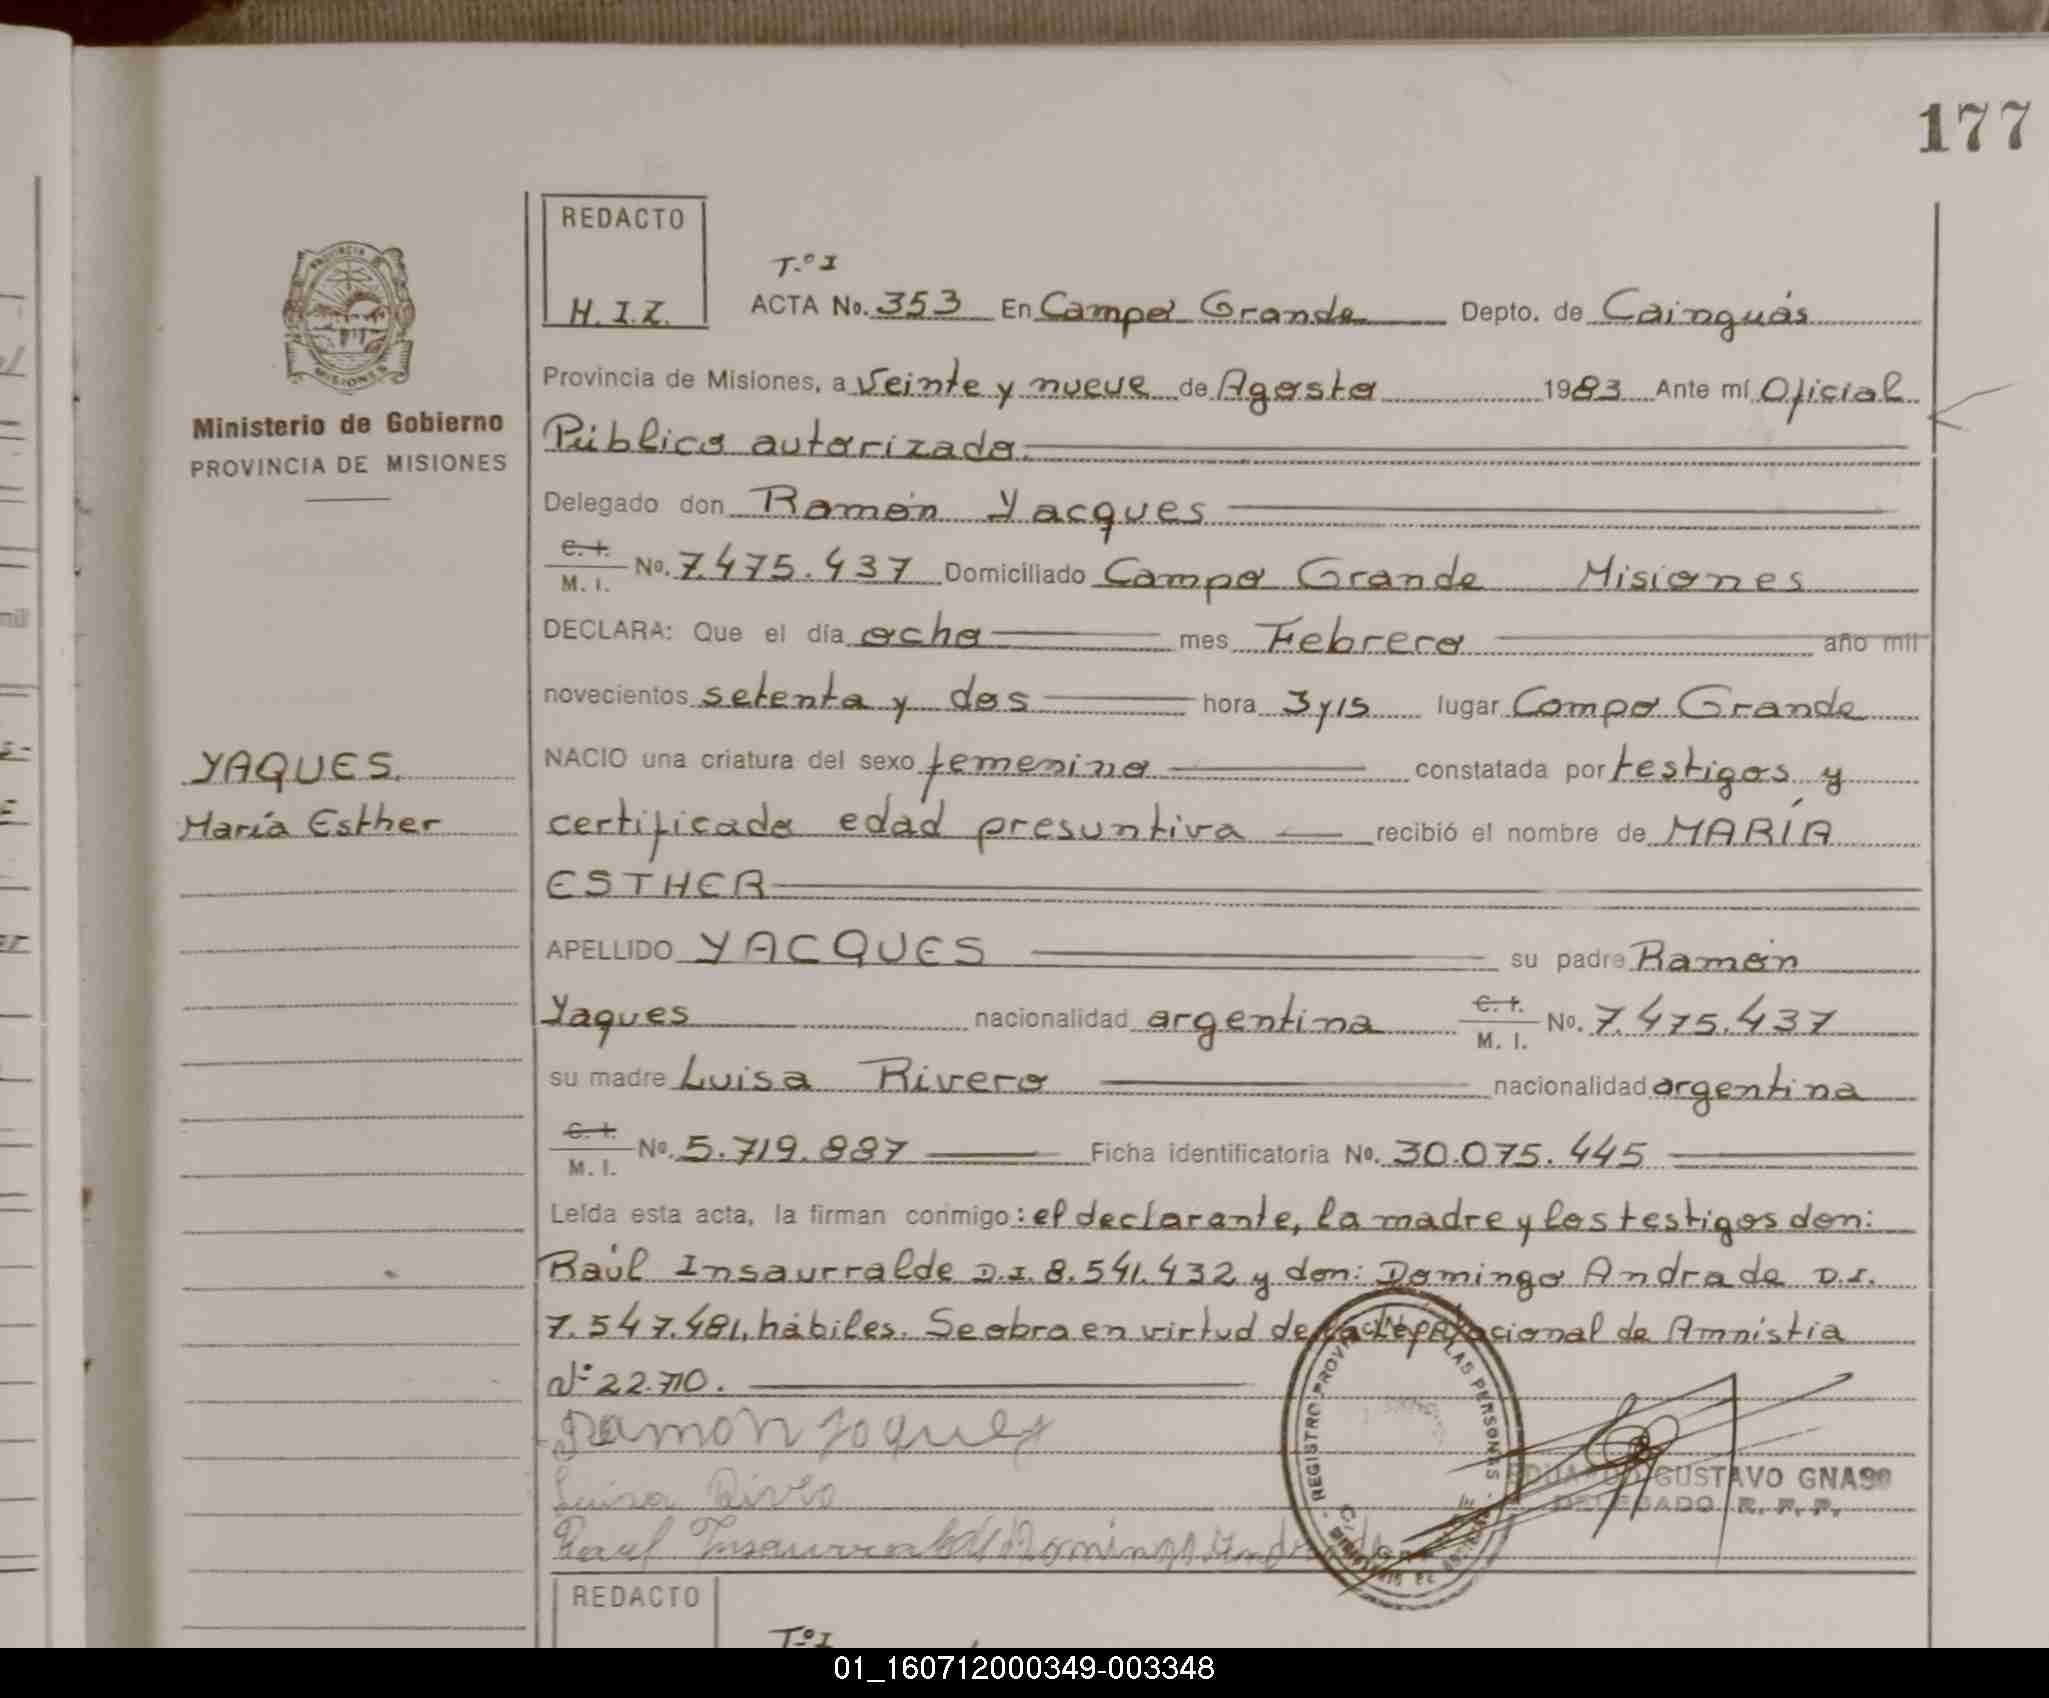 177
REDACTO
H. I. Z.
T.º I
ACTA No. 353 En Campo Grande Depto. de Cainguás
Provincia de Misiones, a veinte y nueve de Agosto 1983 Ante mí Oficial
Público autorizado.
Ministerio de Gobierno
PROVINCIA DE MISIONES
Delegado don Ramón Yacques
C. I. M. I. No. 7.475.437 Domiciliado Campo Grande Misiones
DECLARA: Que el día ocho mes Febrero año mil
novecientos setenta y dos hora 3 y 15 lugar Campo Grande
YAQUES
María Esther
NACIO una criatura del sexo femenino constatada por testigos y
certificado edad presuntiva recibió el nombre de MARÍA
ESTHER
APELLIDO YACQUES su padre Ramón
Yaques nacionalidad argentina C. I. M. I. No. 7.475.437
su madre Luisa Rivero nacionalidad argentina
C. I. M. I. No. 5.719.887 Ficha identificatoria No. 30.075.445
Leída esta acta, la firman conmigo: el declarante, la madre y los testigos don:
Raúl Insaurralde D.I. 8.541.432 y don: Domingo Andrade D.I.
7.547.481, hábiles. Se obra en virtud de la ley Nacional de Amnistía
Nº 22.710.
Ramon Yaques
Luisa
Raul Insaurralde Domingo Andrade
REGISTRO PROVINCIAL DE LAS PERSONAS
EDUARDO GUSTAVO GNASS
DELEGADO R. P. P.
REDACTO
T.º I
01_160712000349-003348